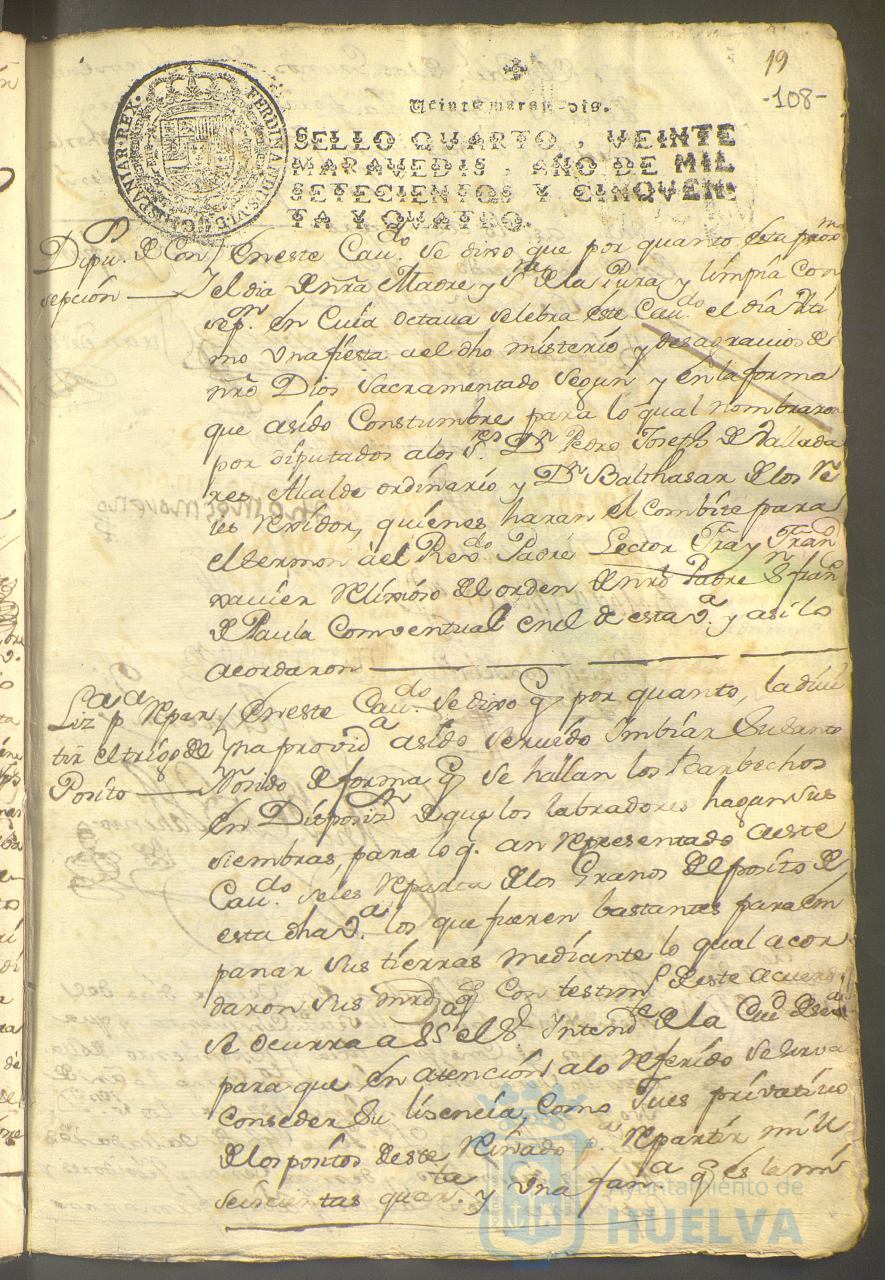 19
-108-
FERDINANDUS.VI.D.G.HISPANIAR.REX.
Veinte maravedis.
SELLO QVARTO, VEINTE
MARAVEDIS, AÑO DE MIL
SETECIENTOS Y CINQVEN
TA Y QVATRO.
Dipu.ᵒˢ de Con
sepción
En este Cau.ᵈᵒ se dixo que por quanto esta proxᵐᵒ
el dia de nrã Madre y S.ʳᵃ de la Pura y limpia Con
sepⁿ. en Cuia octaua selebra este Cau.ᵈᵒ el dia vlti
mo vna fiesta a el dho misterio y desagrauios de
nrõ Dios Sacramentado segun y en la forma
que asido Constumbre para lo qual nombraron
por diputados alos S.ʳᵉˢ Dⁿ Pedro Joseph de Vallada
res Alcalde ordinario y Dⁿ Balthasar de los Re
ies rexidor, quienes haran el Combite para
el sermon a el Rev.ᵈᵒ Padre Lector Fray Franᶜ
xauier relixioso de el orden de nrõ Padre S.ⁿ franᶜ
de Paula Conventual en el de esta vᵃ. y asi lo
acordaron
Lizᵃ pᵃ repar
tir el trigo del
Posito
En este Cau.ᵈᵒ se dixo q̃ por quanto, la diui
na providᵃ asido seruido imbiar su santo
Rosido de forma q̃ se hallan los barbechos
en Disposizⁿ de que los labradores hagan sus
siembras, para lo q. an representado a este
Cau.ᵈᵒ se les reparta de los Granos de el posito de
esta dha vᵃ. los que fueren bastantes para em
panar sus tierras mediante lo qual acor
daron sus mrds q̃ Con testimᵒ de este acuerdo
se ocurra a SS el S.ʳ Intendᵗᵉ de la Ciuᵈ de Seuᵃ
para que en atención alo referido se sirva
conseder su lisencia, como Jues privatiuo
de los positos de este reinado pᵃ repartir mill
seiscientas quarᵗᵃ. y vna fanᵃ q̃ es la mi
Ayuntamiento de
HUELVA